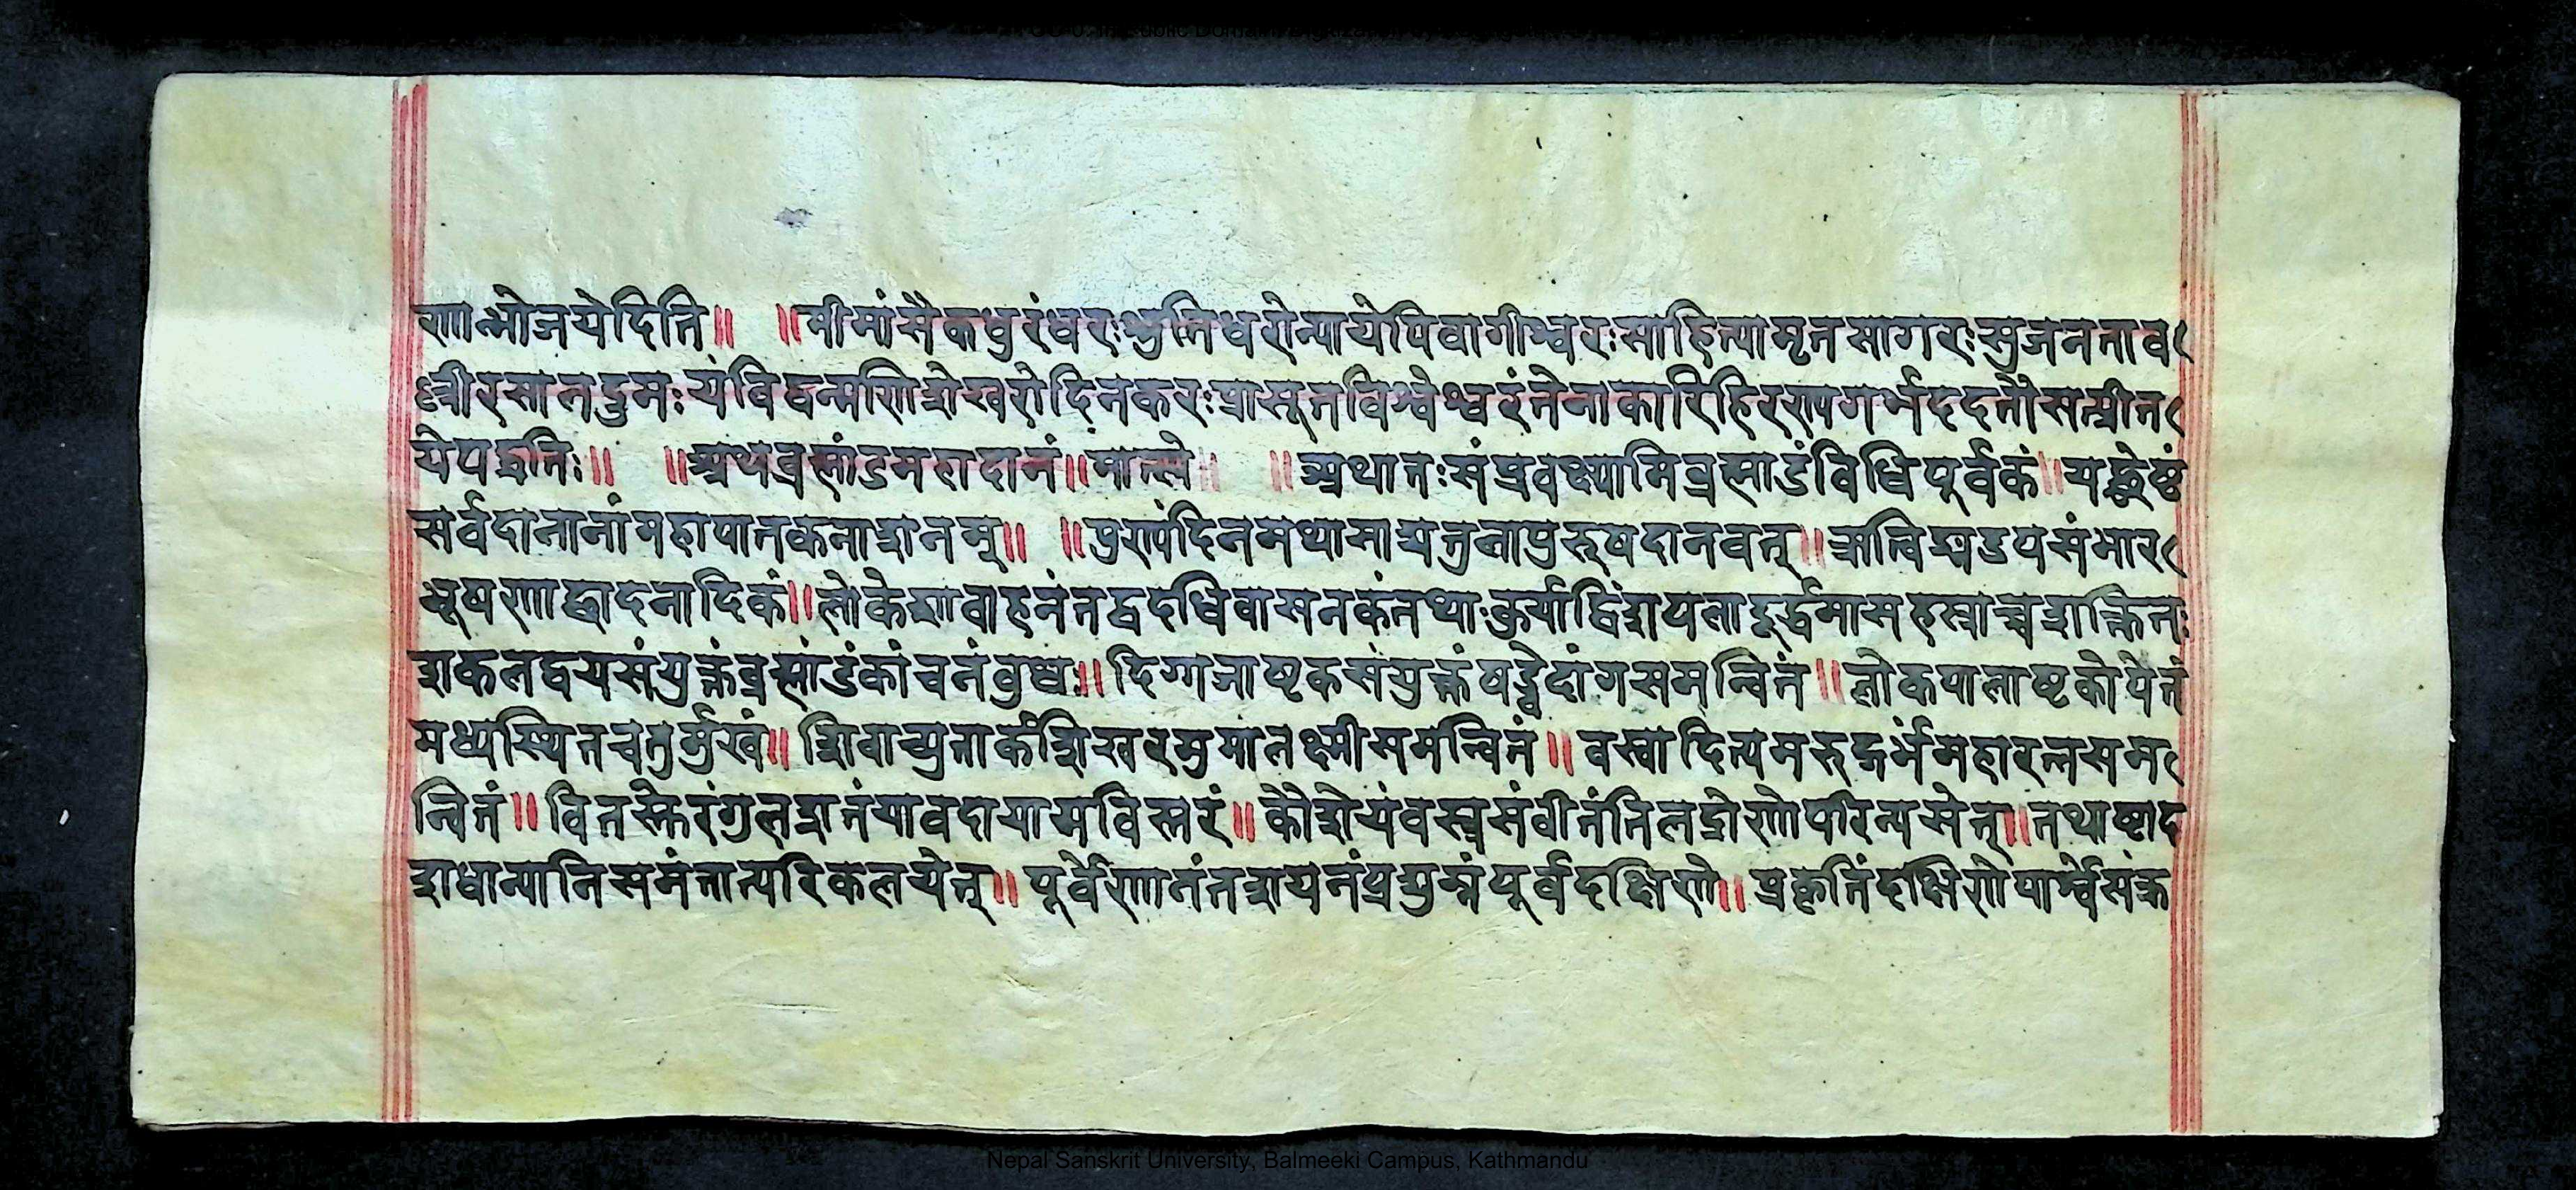 णान्भोजयेदिति॥ ॥मीमांसैकधुरंधरःश्रुतिधरोन्यायेपिवागीश्वरःसाहित्यामृतसागरःसुजनताव
ल्लीरसालद्रुमः यंविद्वन्मणिशेखरोदिनकरःप्रासूतविश्वेश्वरंतेनाकारिहिरण्यगर्भददतौसत्प्रीत
येपद्धतिः॥ ॥अथब्रह्मांडमहादानं॥मात्स्ये॥ ॥अथातःसंप्रवक्ष्यामिब्रह्मांडंविधिपूर्वकं॥यछ्रेष्टं
सर्वदानानांमहापातकनाशनम्॥ ॥पुण्यंदिनमथासाद्यतुलापुरुषदानवत्॥ऋत्विङ्मण्डपसंभार
भूषणाछादनादिकं॥लोकेशावाहनंतद्वदधिवासनकंतथाःकुर्याद्विंशपलादूर्द्धमासहस्राच्चशक्तितः
शकलद्वयसंयुक्तंब्रह्मांडंकांचनंबुधः॥दिग्गजाष्टकसंयुक्तंषड्वेदांगसमन्वितं॥लोकपालाष्टकोपेतं
मध्यस्थितचतुर्मुखं॥शिवाच्युतार्कशिखरमुमालक्ष्मीसमन्वितं॥वस्वादित्यमरुद्गर्भंमहारत्नसम
न्वितं॥वितस्तेरंगुलशतंयावदायामविस्तरं॥कौशेयंवस्त्रसंवीतंतिलद्रोणोपरिन्यसेत्॥तथाष्टाद
शधान्यानिसमंतात्परिकल्पयेत्॥पूर्वेणानंतशयनंप्रद्युम्नंपूर्वदक्षिणे॥प्रकृतिंदक्षिणेपार्श्वेसंक
Nepal Sanskrit University, Balmeeki Campus, Kathmandu